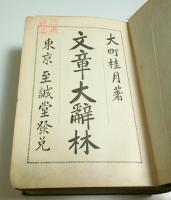 大町桂月著
文章大辭林
東京 至誠堂發兌